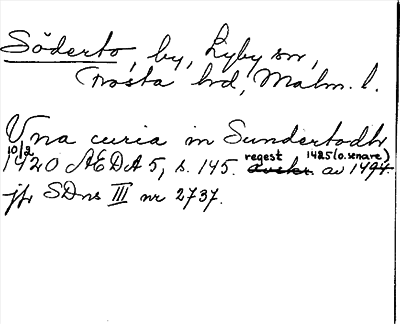 Söderto, by, Lyby sn,
Frosta hrd, Malm. l.
Una curia in Sundertodhr
10/2 1420 AEDA 5, s. 145. regest 1425 (o. senare) avskr. av 1494
jfr SDns III nr 2737.